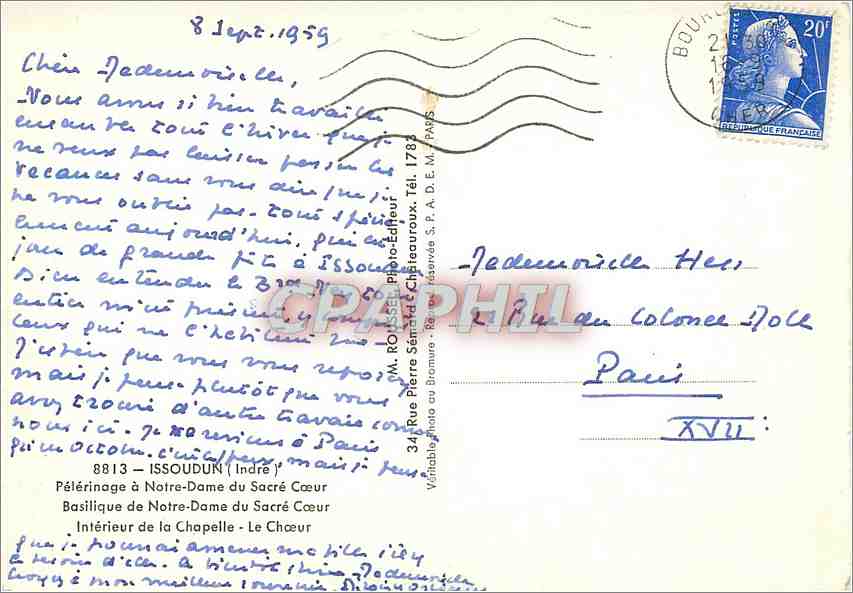 8 Sept. 1959
Chère Mademoiselle,
Nous avons si bien travaillé
ensemble tout l'hiver que je
ne veux pas laisser passer les
vacances sans vous dire que je
ne vous oublie pas. Tout spécia
lement aujourd'hui, qui est
jour de grande fête à Issoudun
Bien entendu le
entier
ceux qui ne l'habitent
J'espère que vous vous reposez
mais je pense plutôt que vous
avez trouvé d'autres travaux comme
nous ici. Je reviens à Paris
qu'en Octobre. mais je pense
8813 — ISSOUDUN (Indre)
Pélérinage à Notre-Dame du Sacré Cœur
Basilique de Notre-Dame du Sacré Cœur
Intérieur de la Chapelle - Le Chœur
que je pourrai amener ma fille
besoin d'elle. A bientôt chère Mademoiselle
croyez à mon meilleur souvenir.
"M. ROUSSEL, Photo-Editeur
34, Rue Pierre Sémard - Châteauroux. Tél. 1783
Véritable Photo au Bromure - Repr. réservée S. P. A. D. E. M. PARIS
CPAPHIL
BOURGES
CHER
POSTES
20F
REPUBLIQUE FRANÇAISE
Mademoiselle Hess
21 Rue du Colonel Moll
Paris
XVII